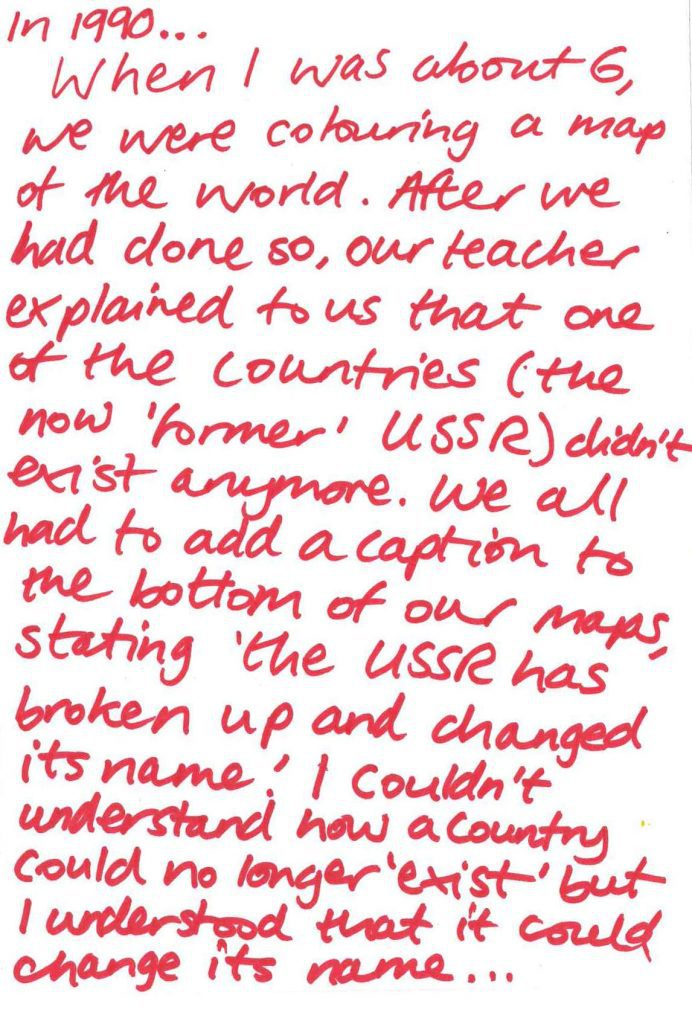 In 1990...
When I was about 6,
we were colouring a map
of the world. After we
had done so, our teacher
explained to us that one
of the countries (the
now 'former' USSR) didn't
exist anymore. We all
had to add a caption to
the bottom of our maps,
stating 'the USSR has
broken up and changed
its name.' I couldn't
understand how a country
could no longer 'exist' but
I understood that it could
change its name...